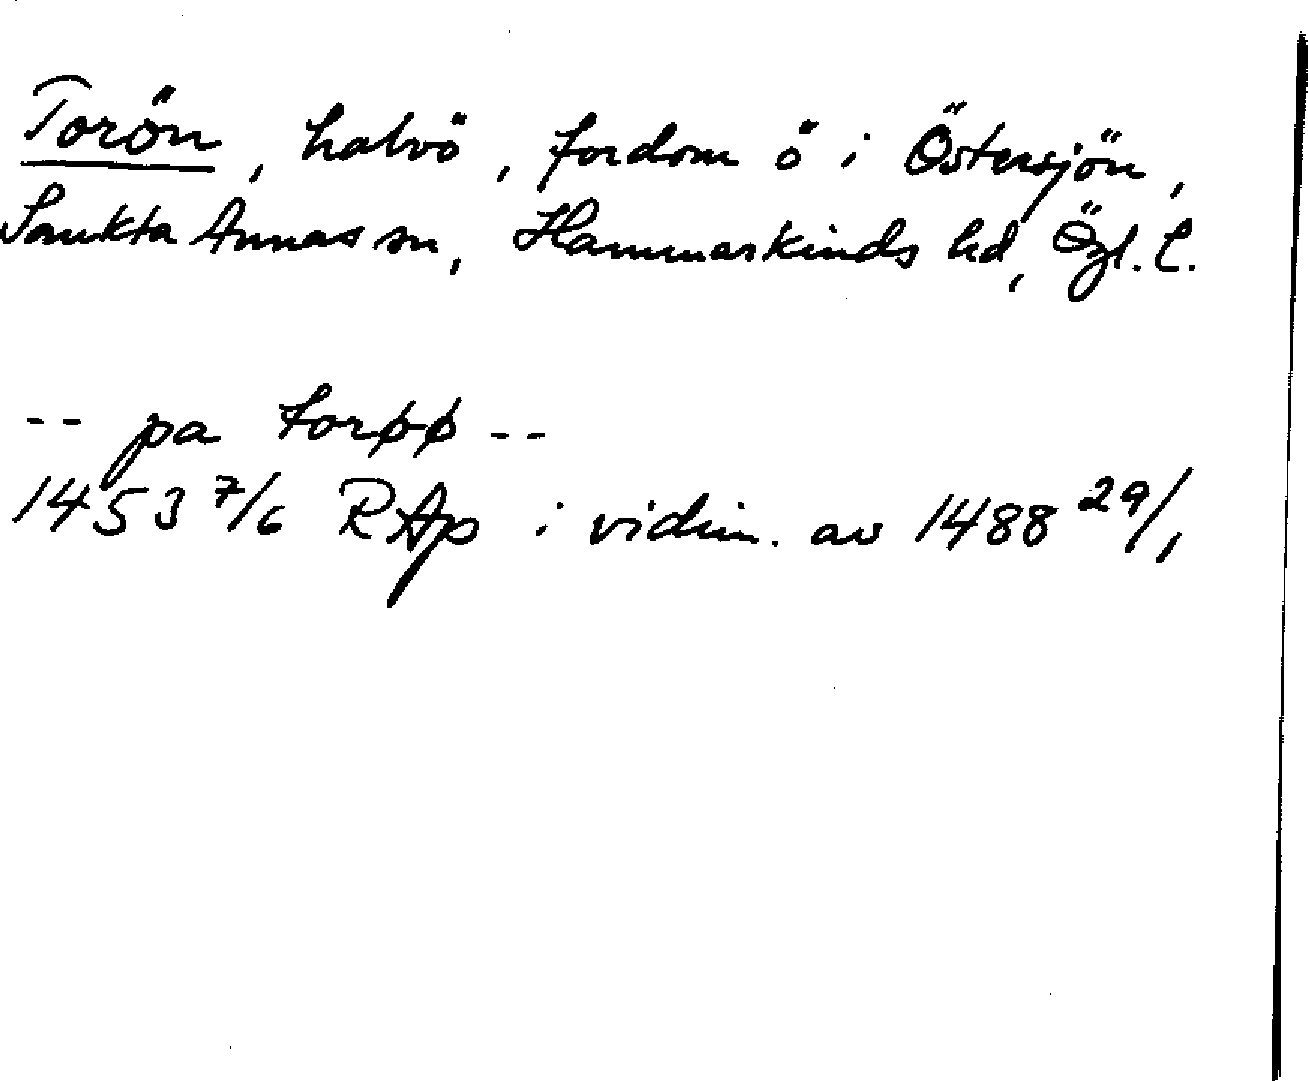 Torön, halvö, fordom ö i Östersjön,
Sankta Annas sn, Hammarkinds hd, Ögl. l.
-- pa torøø --
1453 7/6 RAp i vidim. av 1488 29/1